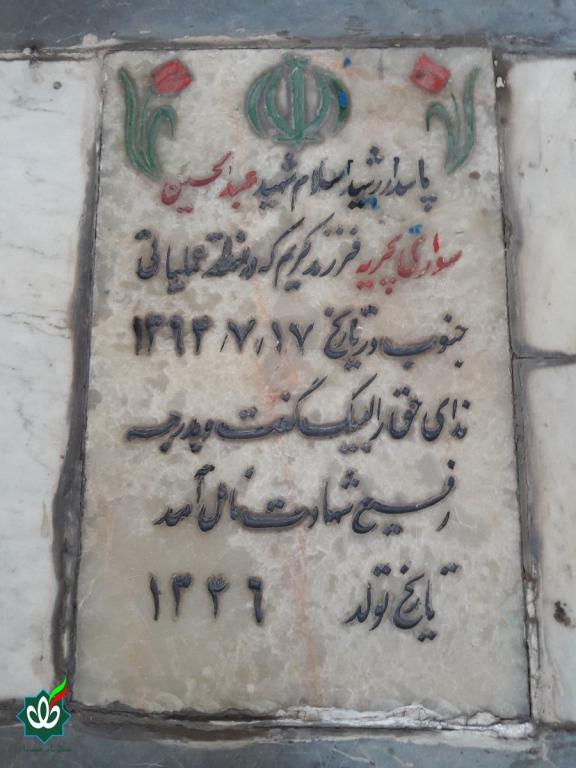 پاسدار رشید اسلام شهید عبدالحسین
سواری بحریه فرزند کریم که در منطقه عملیاتی
جنوب در تاریخ ۱۳۶۳/۷/۱۷
ندای حق را لبیک گفت و بدرجه
رفیع شهادت نائل آمد
تاریخ تولد ۱۳۴۶